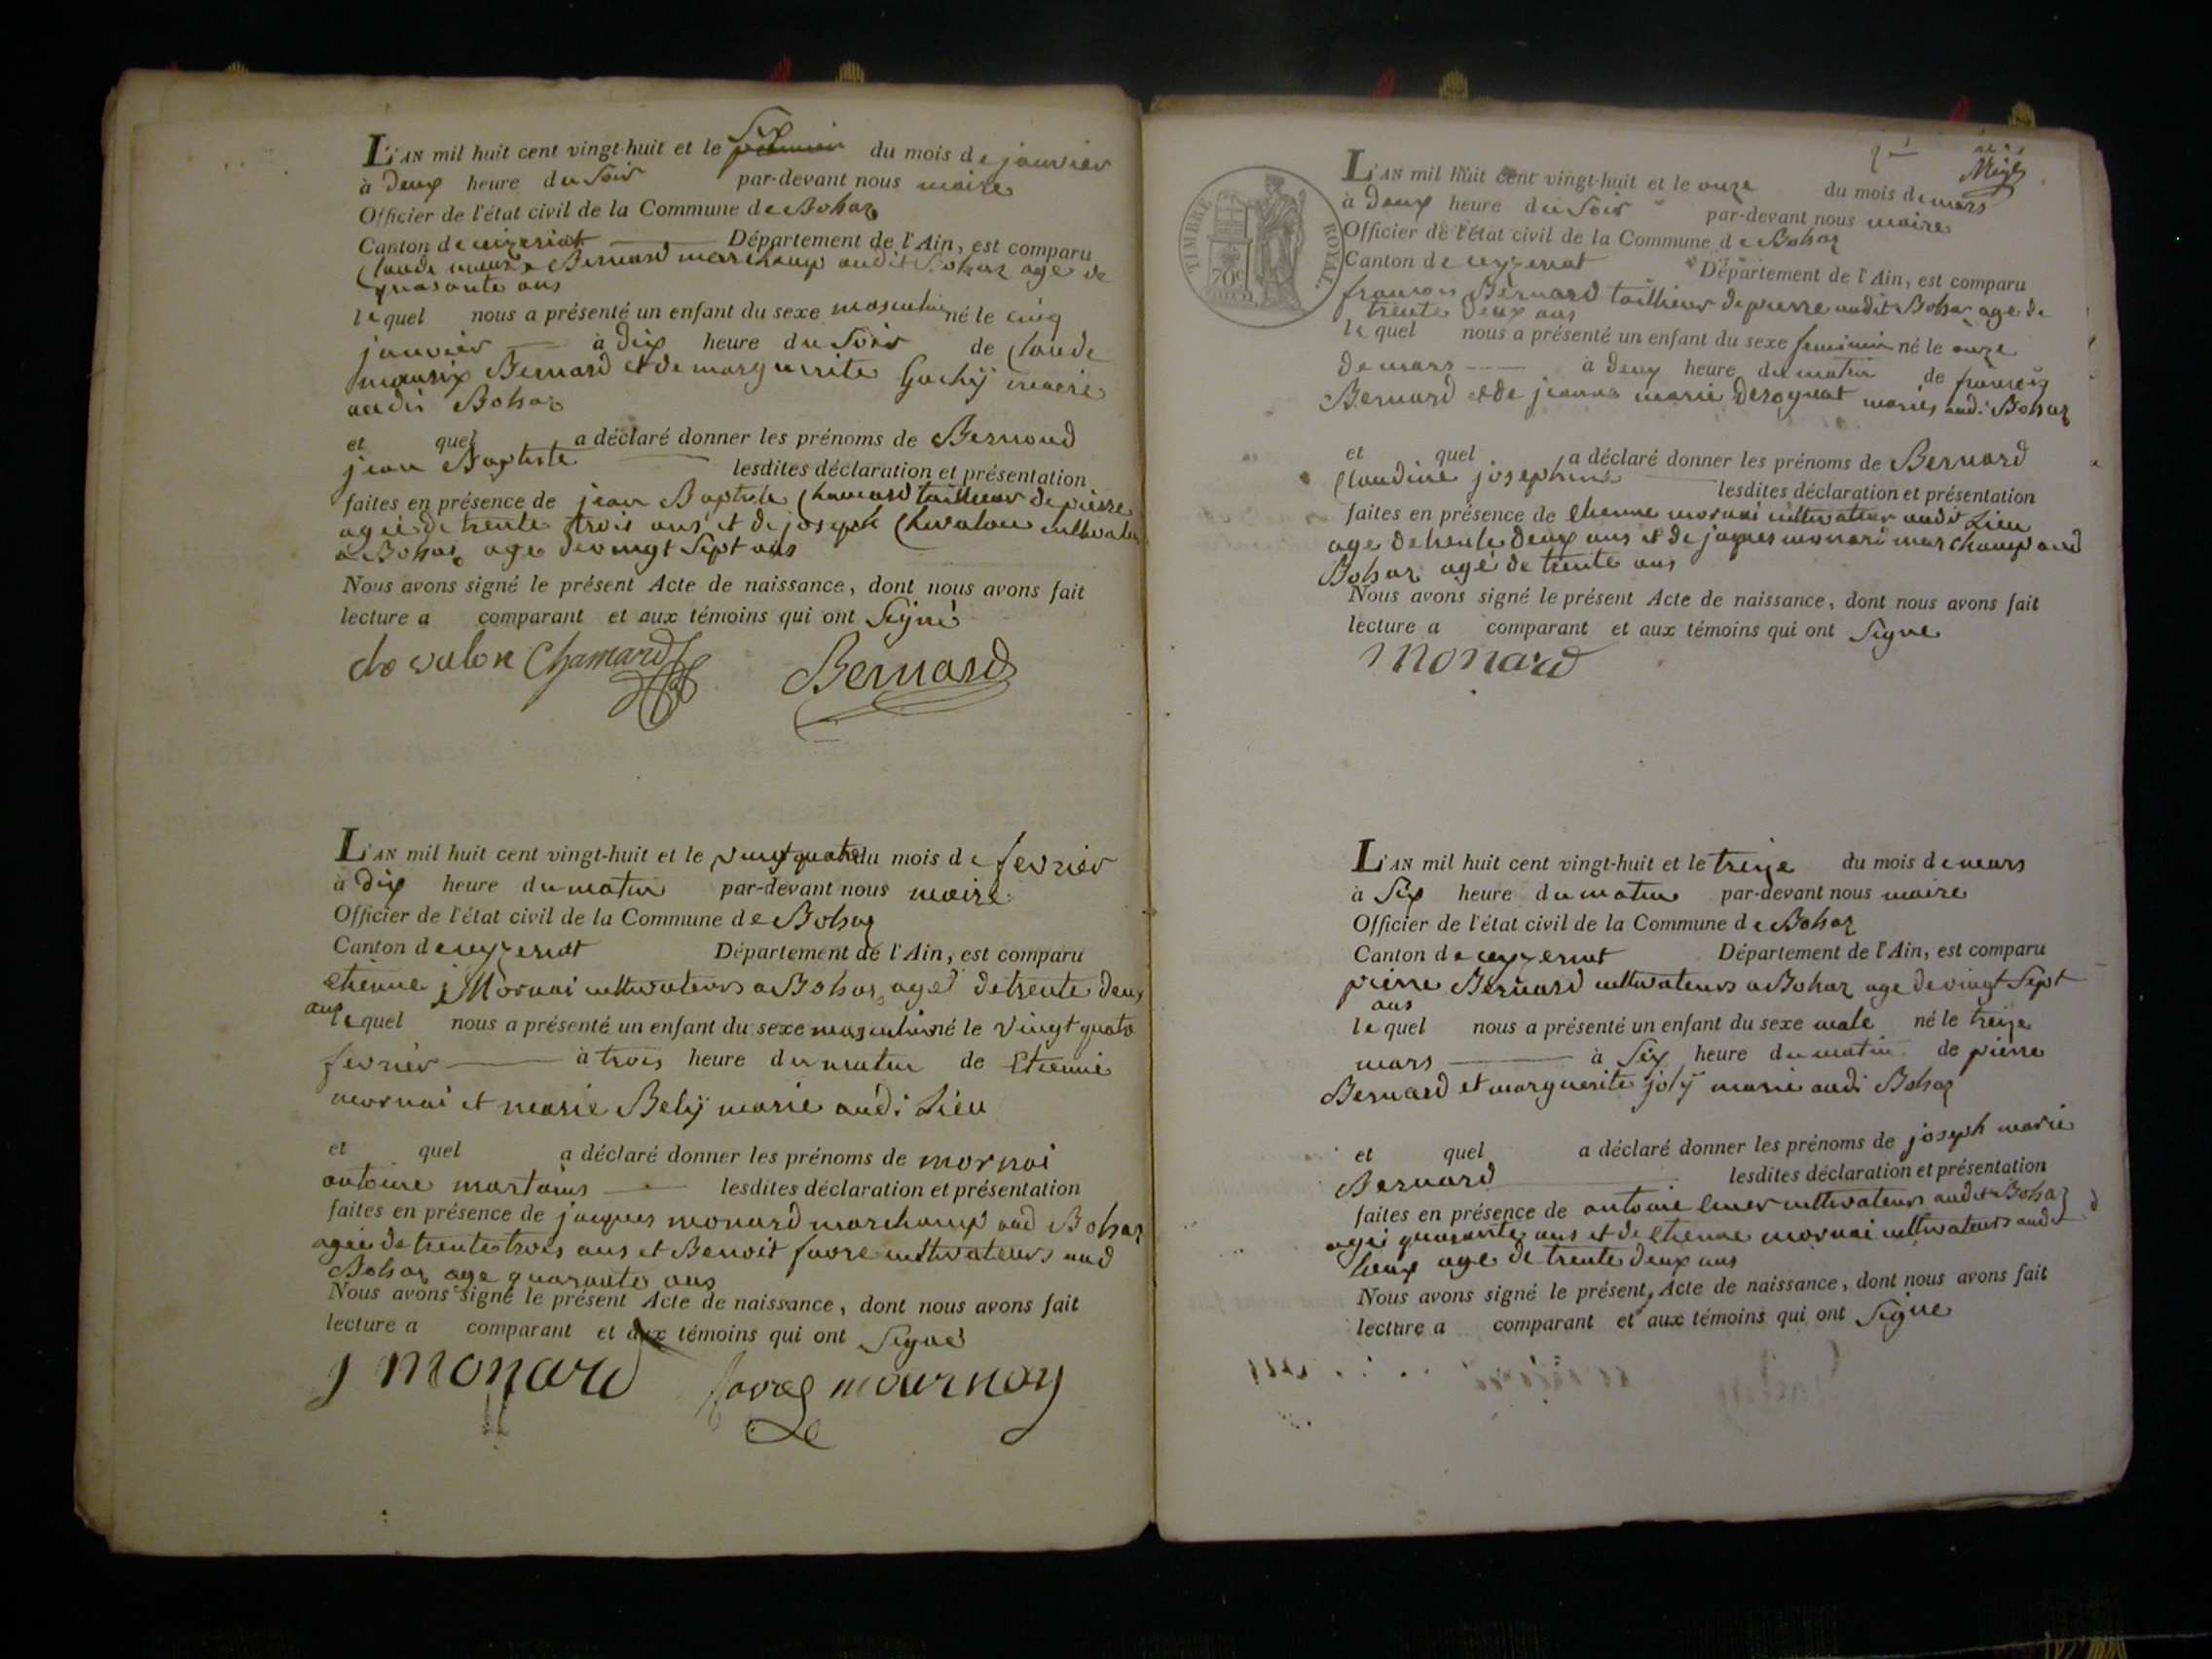 L'AN mil huit cent vingt-huit et le Six premier du mois de janvier
à deux heure du Soir par-devant nous maire
Officier de l'état civil de la Commune de Bohaz
Canton de ceizeriat Département de l'Ain, est comparu
Claude Bernard marchamp audit Bohaz age de
quarante ans
le quel nous a présenté un enfant du sexe masculin né le cinq
janvier à dix heure du Soir de Claude
Bernard et de marguerite marie
audi Bohaz
et quel a déclaré donner les prénoms de Bernoud
jean Baptiste lesdites déclaration et présentation
faites en présence de jean Baptiste Chamard tailleur de pierre
agée de trente trois ans et de joseph Chevalon
a Bohaz age de vingt Sept ans
Nous avons signé le présent Acte de naissance, dont nous avons fait
lecture a comparant et aux témoins qui ont Signé
chevalon Chamard Bernard
L'AN mil huit cent vingt-huit et le vingt quatre du mois de fevrier
à dix heure du matin par-devant nous maire
Officier de l'état civil de la Commune de Bohaz
Canton de ceyzeriat Département de l'Ain, est comparu
etienne Mornai cultivateurs a Bohaz agé de trente deux
ans
le quel nous a présenté un enfant du sexe masculin né le vingt quatre
fevrier à trois heure du matin de Etienne
mornai et marie Bely marie audi Lieu
et quel a déclaré donner les prénoms de mornai
antoine lesdites déclaration et présentation
faites en présence de jacques monard marchamp aud Bohaz
agée de trente trois ans et Benoit favre cultivateurs aud
Bohaz age quarante ans
Nous avons signé le présent Acte de naissance, dont nous avons fait
lecture a comparant et aux témoins qui ont Signé
j monard favre mournoy
TIMBRE ROYAL.
70c
L'AN mil huit cent vingt-huit et le onze du mois de mars
à deux heure du Soir par-devant nous maire
Officier de l'état civil de la Commune de Bohaz
Canton de ceyzeriat Département de l'Ain, est comparu
francois Bernard taillieur de pierre audit Bohaz age de
trente deux ans
le quel nous a présenté un enfant du sexe feminin né le onze
de mars à deux heure du matin de françois
Bernard et de jeanne marie mariés audi Bohaz
et quel a déclaré donner les prénoms de Bernard
Claudine josephine lesdites déclaration et présentation
faites en présence de Etienne mornai cultivateur audit Lieu
age de trente deux ans et de jaques monard marchamp aud
Bohaz agé de trente ans
Nous avons signé le présent Acte de naissance, dont nous avons fait
lecture a comparant et aux témoins qui ont Signe
monard
L'AN mil huit cent vingt-huit et le treize du mois de mars
à Six heure du matin par-devant nous maire
Officier de l'état civil de la Commune de Bohaz
Canton de ceyzeriat Département de l'Ain, est comparu
pierre Bernard cultivateurs a Bohaz age de vingt Sept
ans
le quel nous a présenté un enfant du sexe male né le treize
mars à Six heure du matin de pierre
Bernard et marguerite joly marie audi Bohaz
et quel a déclaré donner les prénoms de joseph marie
Bernard lesdites déclaration et présentation
faites en présence de antoine cultivateurs audit Bohaz
agée quarante ans et de Etienne mornai cultivateurs audit
lieux age de trente deux ans
Nous avons signé le présent Acte de naissance, dont nous avons fait
lecture a comparant et aux témoins qui ont Signe